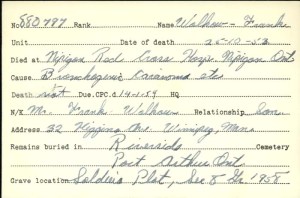 No 880787 Rank Name Walkow - Frank
Unit Date of death 25-10-53
Died at Nipigon Red Cross Hosp. Nipigon Ont
Cause Bronchogenic Carcinoma etc
Death not Due. CPC.d 14-1-59 HQ
N/K Mr. Frank Walkow Relationship Son
Address 32 Higgins Ave Winnipeg, Man.
Remains buried in Riverside Cemetery
Port Arthur Ont
Grave location Soldiers Plot, Sec 8 Gr. 1958